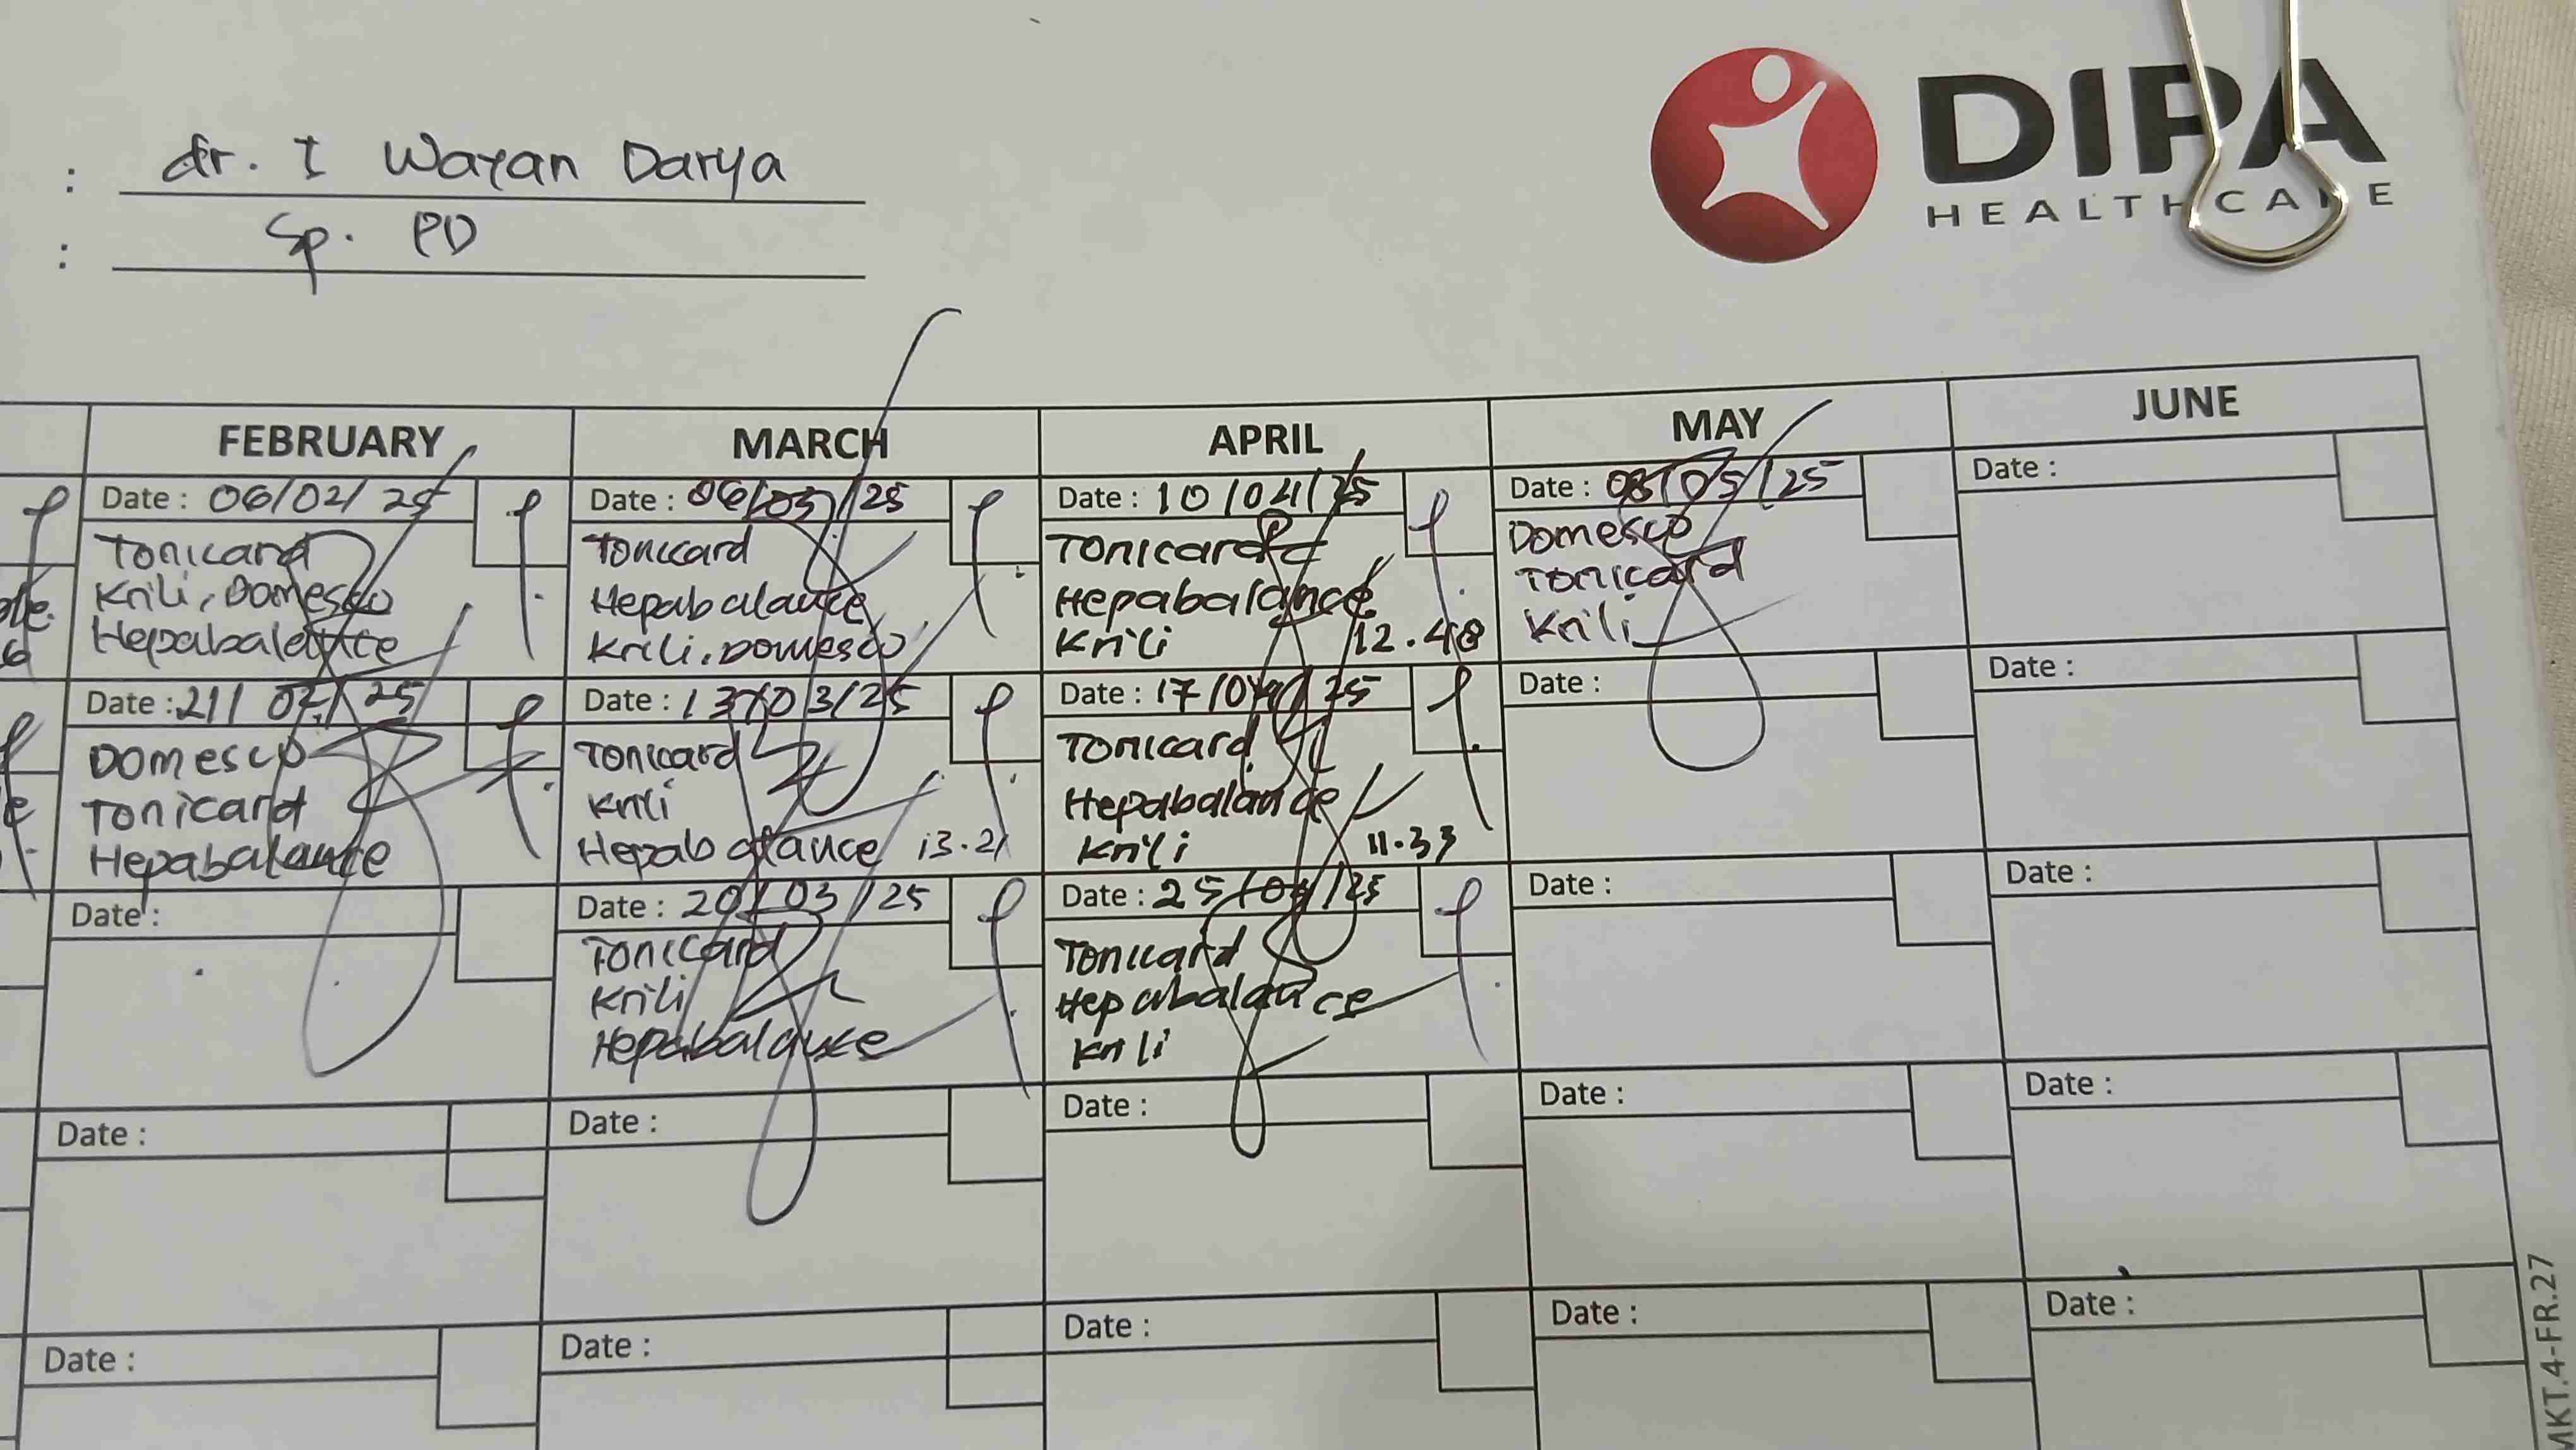 DIPA
HEALTHCARE
: dr. I Wayan Darya
: Sp. PD
FEBRUARY
Date : 06/02/25
Tonicard
Krili, Domesco
Hepabalance
Date : 21/02/25
Domesco
Tonicard
Hepabalance
Date :
Date :
Date :
MARCH
Date : 06/03/25
Tonicard
Hepabalance
Krili, Domesco
Date : 13/03/25
Tonicard
Krili
Hepabalance 13.21
Date : 20/03/25
Tonicard
Krili
Hepabalance
Date :
Date :
APRIL
Date : 10/04/25
Tonicard
Hepabalance
Krili 12.48
Date : 17/04/25
Tonicard
Hepabalance
Krili 11.33
Date : 25/04/25
Tonicard
Hepabalance
Krili
Date :
Date :
MAY
Date : 08/05/25
Domesco
Tonicard
Krili
Date :
Date :
Date :
Date :
JUNE
Date :
Date :
Date :
Date :
Date :
MKT.4-FR.27